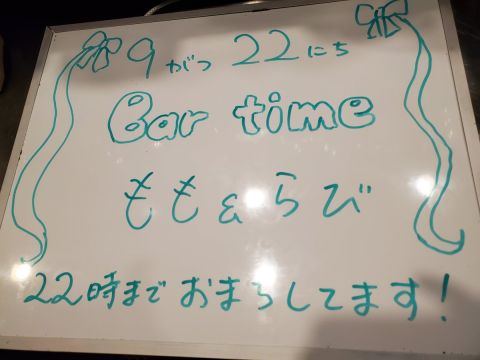 9がつ 22にち
Bar time
もも&らび
22時まで おまちしてます!